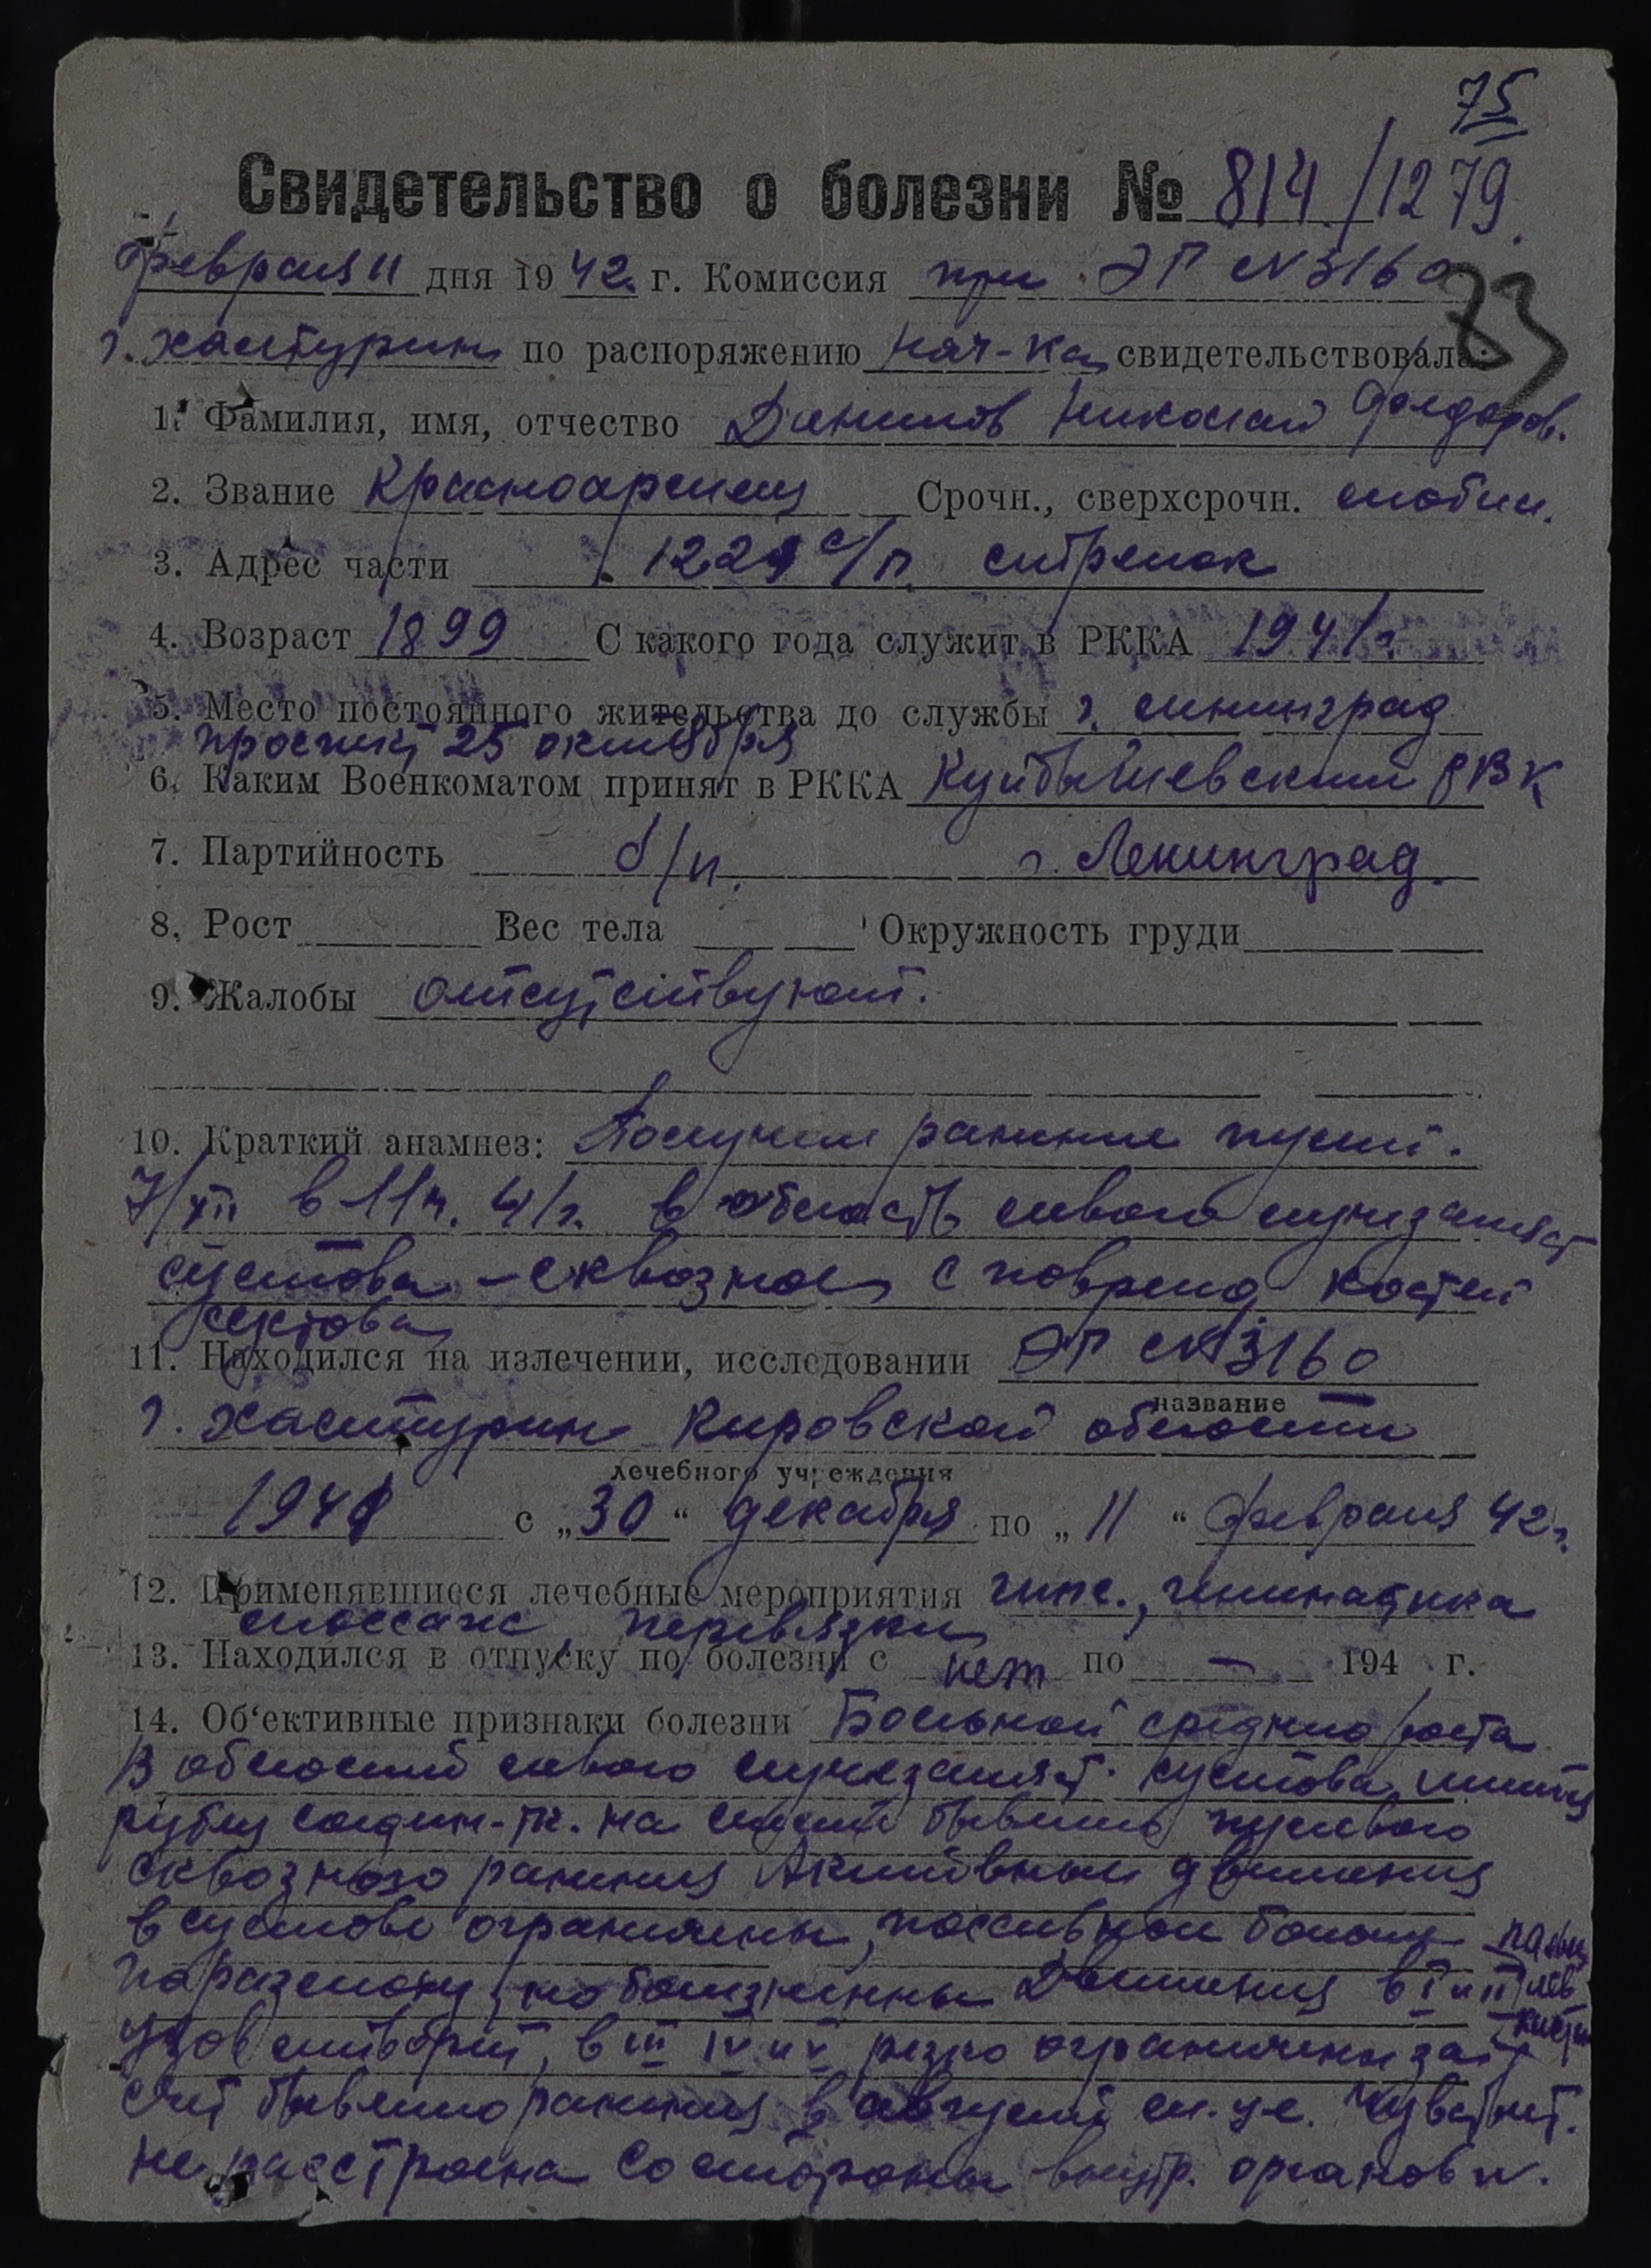 75
Свидетельство о болезни № 814/1279.
Февраля 11 дня 1942 г. Комиссия при ЭГ №3160
73
г. Халтурин по распоряжению нач-ка свидетельствовала:
1. Фамилия, имя, отчество Данилов Николай Фёдоров.
2. Звание Красноармеец Срочн., сверхсрочн. мобил.
3. Адрес части 1229 с/п. стрелок
4. Возраст 1899 С какого года служит в РККА 1941 г.
5. Место постоянного жительства до службы г. Ленинград
проспект 25 октября
6. Каким Военкоматом принят в РККА Куйбышевский РВК
7. Партийность б/п. г. Ленинград.
8. Рост Вес тела Окружность груди
9. Жалобы отсутствуют.
10. Краткий анамнез: Получил ранение пулей.
7/XII в 11 ч. 41 г. в область левого лучезапяст
сустава - сквозное с поврежд костей
сустава
11. Находился на излечении, исследовании ЭГ №3160
название
г. Халтурин Кировской области
лечебного учреждения
1941 с „30“ декабря по „11“ февраля 42 г.
12. Применявшиеся лечебные мероприятия гипс., гимнастика
массаж, перевязки
13. Находился в отпуску по болезни с нет по — 194 г.
14. Об‘ективные признаки болезни Больной среднего роста
В области левого лучезапяст. сустава имеются
рубцы соедин-тк. на месте бывшего пулевого
сквозного ранения Активные движения
в суставе ограничены, пассивные
безболезненны Движения в I и II пальц лев кисти
удовлетворит, в III IV и V резко ограничены за
счет бывшего ранения в августе м-це. Чувствит.
не расстроена Со стороны внутр. органов N.